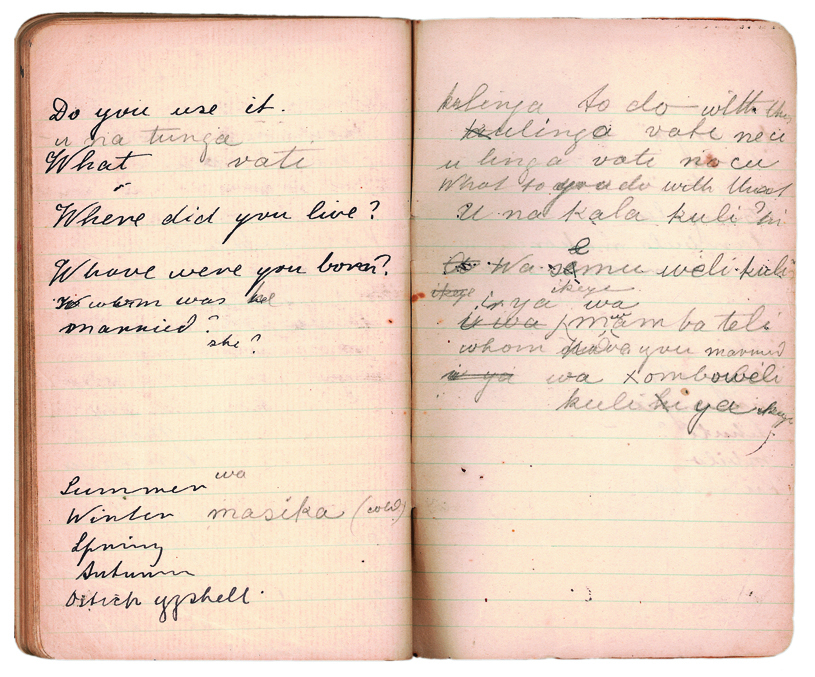 Do you use it.
u na tunga
What vati
Where did you live?
Whave were you born?
whom was he
married?
she?
Summer wa
Winter masika (cold)
Spring
Autumn
Ostich
kulinga to do with this
kulinga vati neci
u linga vati
What to you do with that
U na kala kuli?
Wa semu weli kuli
ikeye
ya wa
mamba teli
whom you married
wa xombo weli
kuli ya